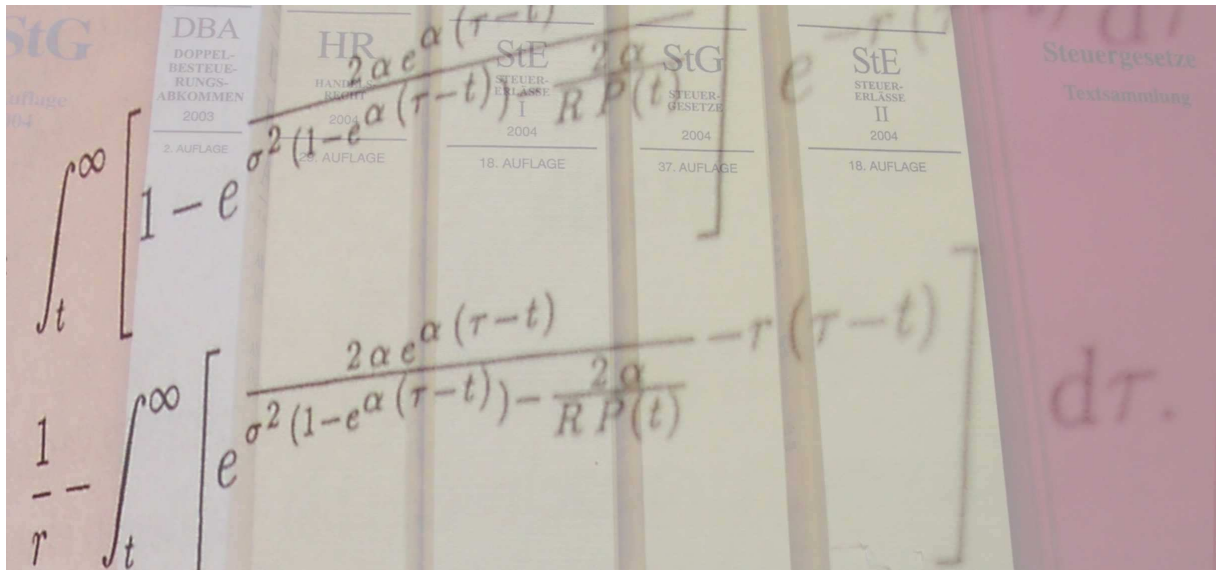 StG
uflage
DBA
DOPPEL-
BESTEUE-
RUNGS-
ABKOMMEN
2003
2. AUFLAGE
HR
HANDELS-
RECHT
2004
29. AUFLAGE
StE
STEUER-
ERLÄSSE
I
2004
18. AUFLAGE
StG
STEUER-
GESETZE
2004
37. AUFLAGE
StE
STEUER-
ERLÄSSE
II
2004
18. AUFLAGE
Steuergesetze
Textsammlung
∫_t^∞ [ 1 − e^{\frac{2 α e^{α (τ−t)}}{σ^2 (1−e^{α (τ−t)}) − \frac{2 α}{R P(t)}}} ] e^{−r (τ−t)} dτ
\frac{1}{r} − ∫_t^∞ [ e^{\frac{2 α e^{α (τ−t)}}{σ^2 (1−e^{α (τ−t)}) − \frac{2 α}{R P(t)}} −r (τ−t)} ] dτ.